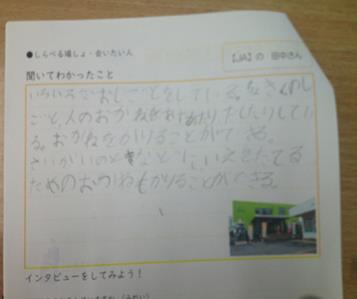 ●しらべる場しょ・会いたい人
【JA】の 田中さん
聞いてわかったこと
いろいろなおしごとをしている。
ごと人のおかねをあずかりだしたりしてい
る。おかねをかりることができる。
さいがいのときなどにいえをたてる
ためのおかねもかりることができる。
インタビューをしてみよう！